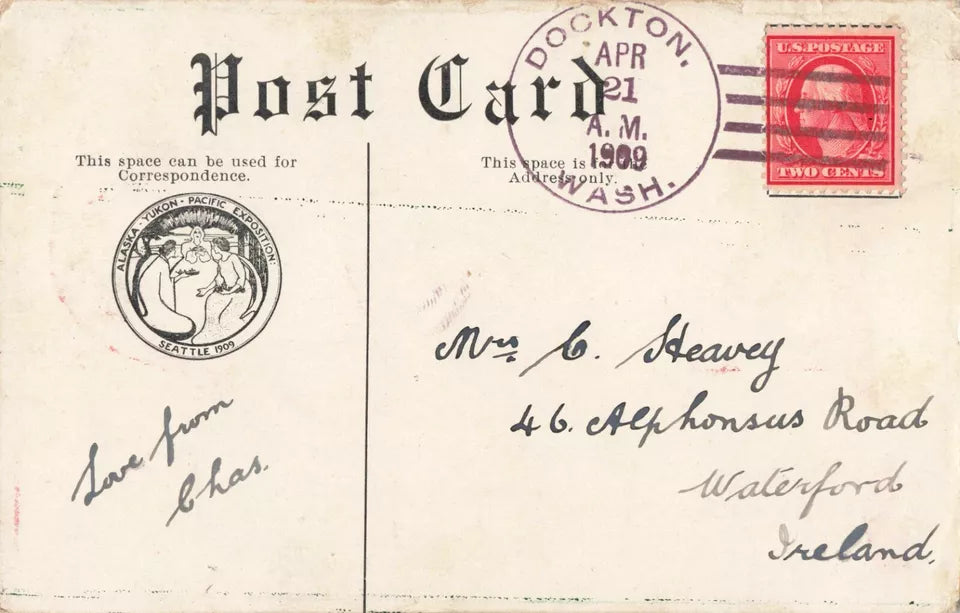 Post Card
This space can be used for
Correspondence.
This space is for the
Address only.
DOCKTON,
APR
21
A. M.
1909
WASH.
U.S. POSTAGE
TWO CENTS
ALASKA · YUKON · PACIFIC EXPOSITION:
SEATTLE 1909
Love from
Chas.
Mrs C. Heavey
46. Alphonsus Road
Waterford
Ireland.